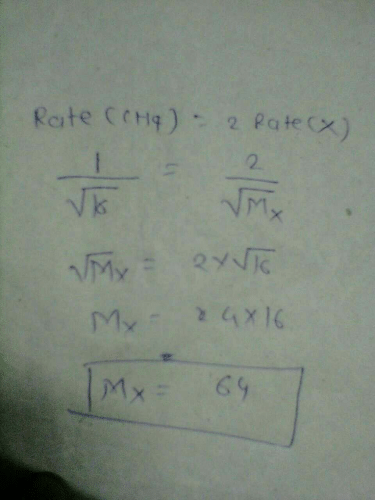 Rate (CH4) = 2 Rate (X)
1/√16 = 2/√Mx
√Mx = 2×√16
Mx = 4×16
Mx = 64